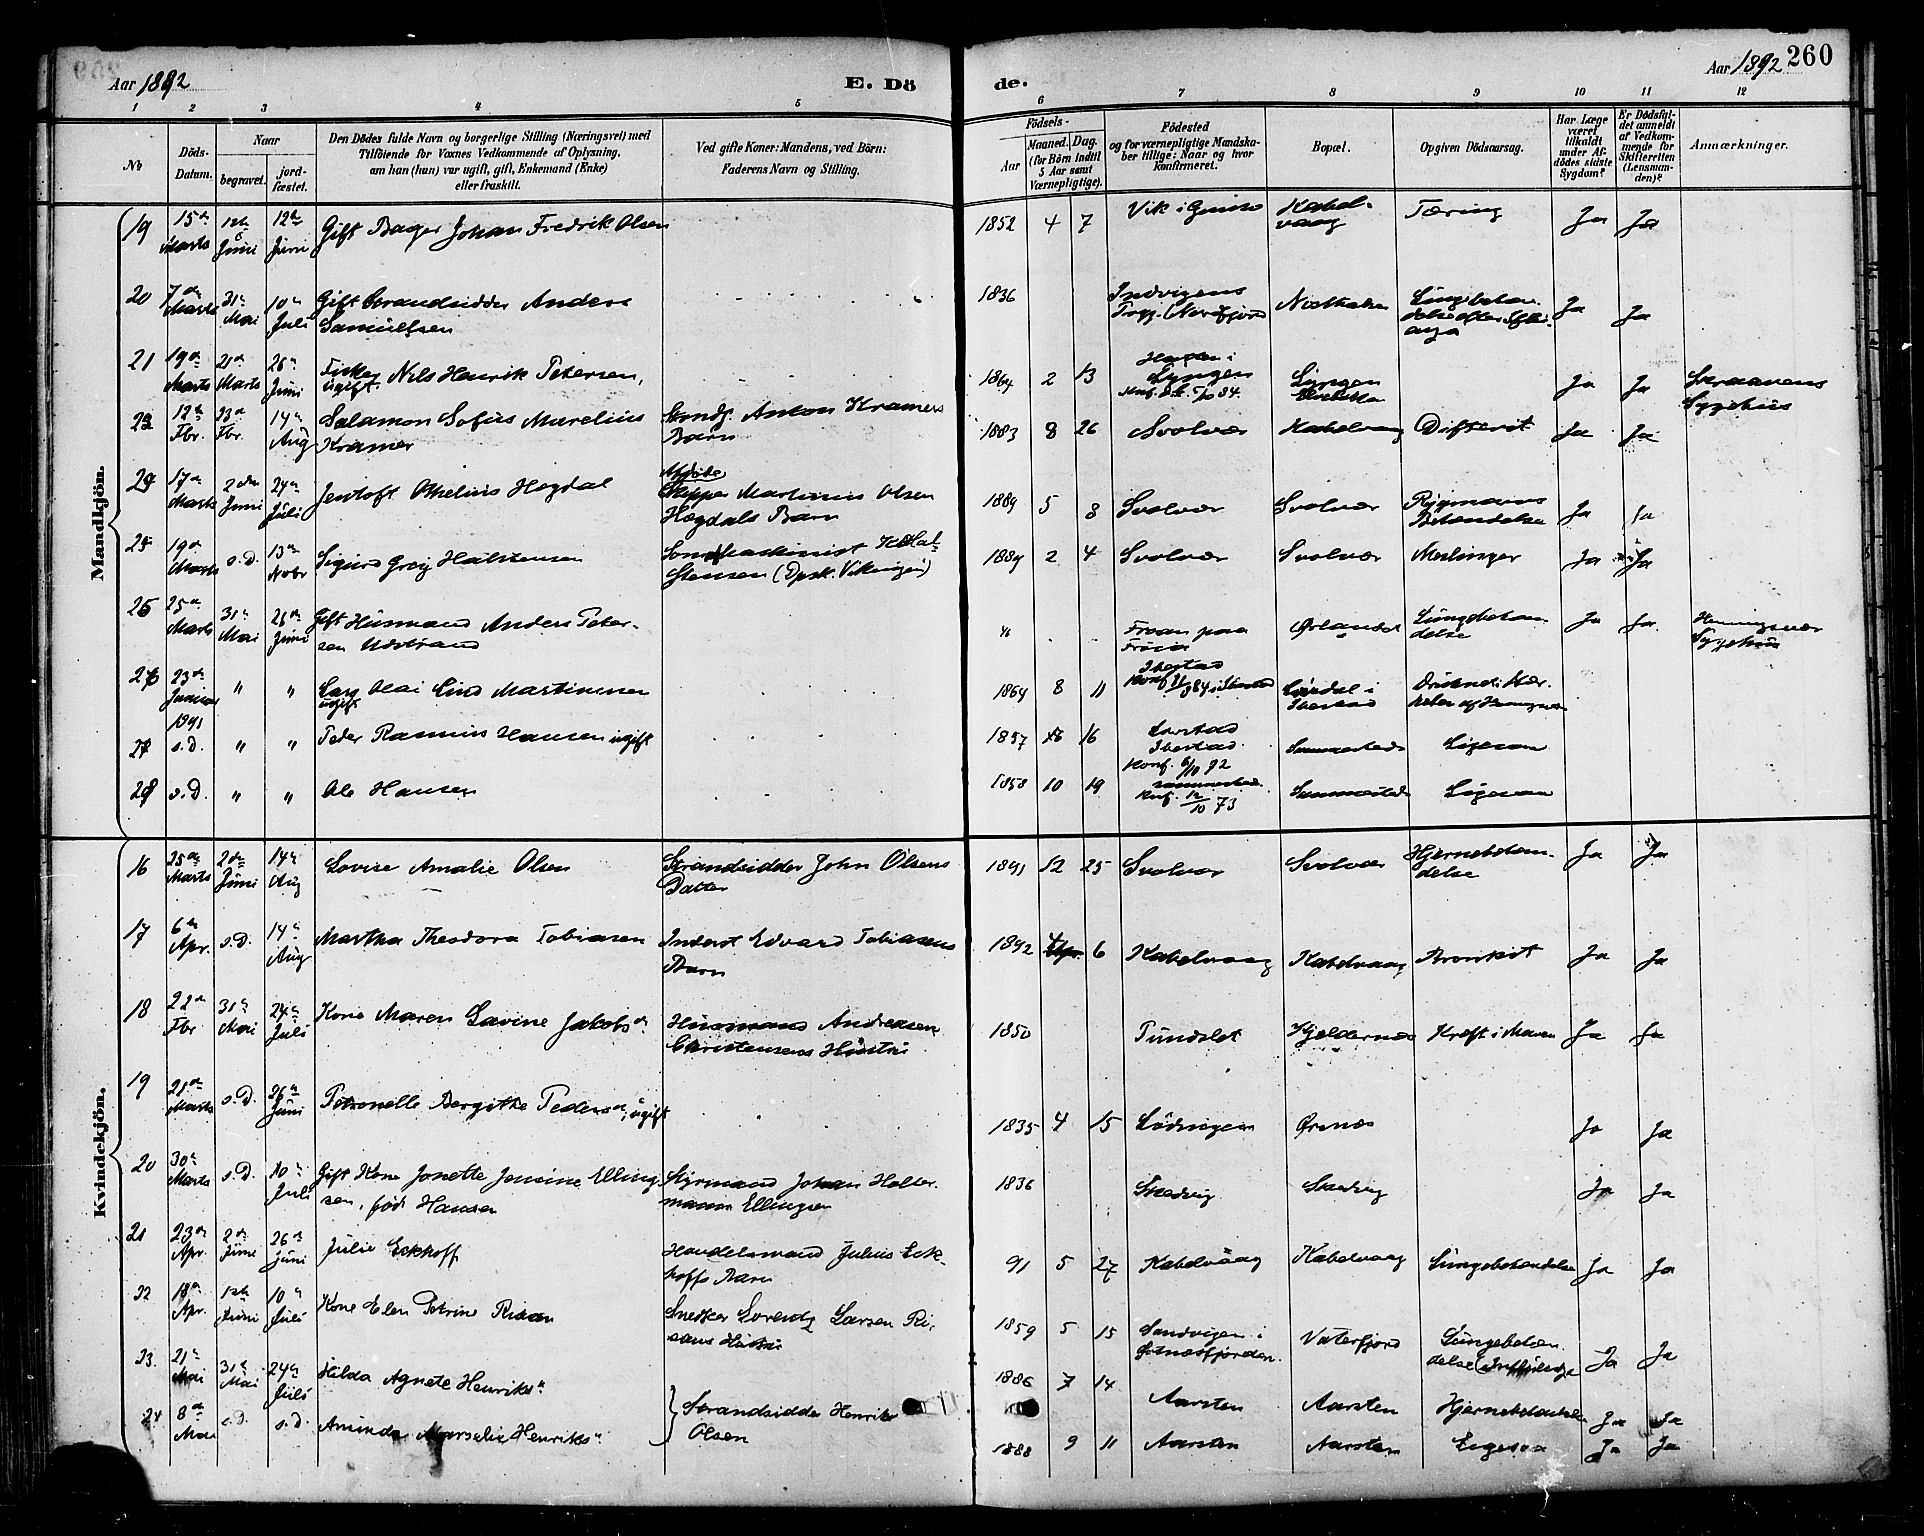 Aar 1892
E. Dö
de.
Aar 1892
260
1 2 3 4 5 6 7 8 9 10 11 12
No
Döds-
Datum.
Naar
begravet.
jord-
fæstet.
Den Dödes fulde Navn og borgerlige Stilling (Næringsvei) med
Tilföiende for Voxnes Vedkommende af Oplysning,
om han (hun) var ugift, gift, Enkemand (Enke)
eller fraskilt.
Ved gifte Koner: Mandens, ved Börn:
Faderens Navn og Stilling.
Födsels-
Aar
Maaned. Dag.
(for Börn indtil
5 Aar samt
Værnepligtige).
Födested
og for værnepligtige Mandska-
ber tillige: Naar og hvor
konfirmeret.
Bopæl.
Opgiven Dödsaarsag.
Har Læge
været
tilkaldt
under Af-
dödes sidste
Sygdom?
Er Dödsfal-
det anmeldt
af Vedkom-
mende for
Skifteretten
(Lensman-
den)?
Anmærkninger.
Mandkjön.
19 15de Marts 1ste Juni 12te Juni Gift Bager Johan Fredrik Olsen 1852 4 7 Vik i Kabel-
vaag Tæring Ja Ja
20 7de Marts 31te Mai 10de Juli Gift Strandsidder Anders
Samuelsen 1836 Indvigens
Nordfjord Ja Ja
21 19de Marts 21de Marts 26de Juni Fisker Nils Henrik Petersen,
ugift 1864 2 13 Lyngen Lyngen Ja Ja Skraavens
Sygehus
12te Fbr. 23de Fbr. 14de Aug Salamon Sofus Marelius
Kramer Anton Kramers
Barn 1883 8 26 Svolvær Kabelvaag Difterit Ja Ja
17de Marts 2den Juni 24de Juli Jentoft Othelius Hogdal Afdöde
Skipper Martinus Olsen
Hogdals Barn 1889 5 8 Svolvær Svolvær Rygmarvs
Betændelse Ja Ja
19de Marts s.D. 13de Nobr Sigurd Greig Halstensen Hal-
stensen (Dpsk. Vikingen) 1889 2 4 Svolvær Svolvær Meslinger Ja Ja
25de Marts 31te Mai 26de Juni Gift Husmand Anders Peter-
sen Udstrand Froan paa
Fröien Ørlandet Lungebetæn-
delse Ja Ja Henningsvær
Sygehus
23de Januar 1891 " " Lars Olai Lind Martinussen
ugift 1864 8 11 Ibestad
Ibestad
s.D. " " Peder Rasmus Hansen ugift 1857 16 Ibestad
Konf. Sammesteds Ligesaa
s.D. " " Ole Hansen 1858 10 19 Sammesteds
Konf. 12/10 73 Sammesteds Ligesaa
Kvindekjön.
16 25de Marts 2den Juni 14de Aug Lovise Amalie Olsen Strandsidder John Olsens
Datter 1891 12 25 Svolvær Svolvær Hjernebetæn-
delse Ja Ja
17 6te Apr. s.D. 14de Aug Martha Theodora Tobiasen Inderst Edvard Tobiasens
Barn 1892 4 6 Kabelvaag Kabelvaag Bronkit Ja Ja
18 22de Fbr 31te Mai 24de Juli Kone Maren Lavine Jakobsdr Husmand Andreasen
Christensens Hustru 1850 Tundslet Kjeldernes Kræft i Maven Ja Ja
19 21de Marts s.D. 26de Juni Petronelle Bergitte Pedersdr, ugift 1835 4 15 Lödingen Ørsnes Ja Ja
20 30te Marts s.D. 10de Juli Gift Kone Jonette Jensine Elling-
sen, född Hansen Styrmand Johan Holter-
mann Ellingsen 1836 Ja Ja
21 23de Apr. 2den Juni 26de Juni Julie Eckhoff Handelsmand Julius Eck-
hoffs Barn 91 5 27 Kabelvaag Kabelvaag Lungebetændelse Ja Ja
22 18de Apr. 1ste Juni 10de Juli Kone Elen Petrine Risan Snedker Lorentz Larsen Ri-
sans Hustru 1859 5 15 Sandvigen i
Østnæsfjorden Vaterfjord Lungebetæn-
delse (Influenza) Ja Ja
23. 21de Mai 31te Mai 24de Juli Hilda Agnete Henriksdr Strandsidder Henrik
Olsen 1886 7 14 Aarsten Aarsten Hjernebetændelse Ja Ja
24 8de Mai s.D. s.D. Aminda Marselie Henriksdr 1888 9 11 Aarsten Aarsten Ligesaa Ja Ja